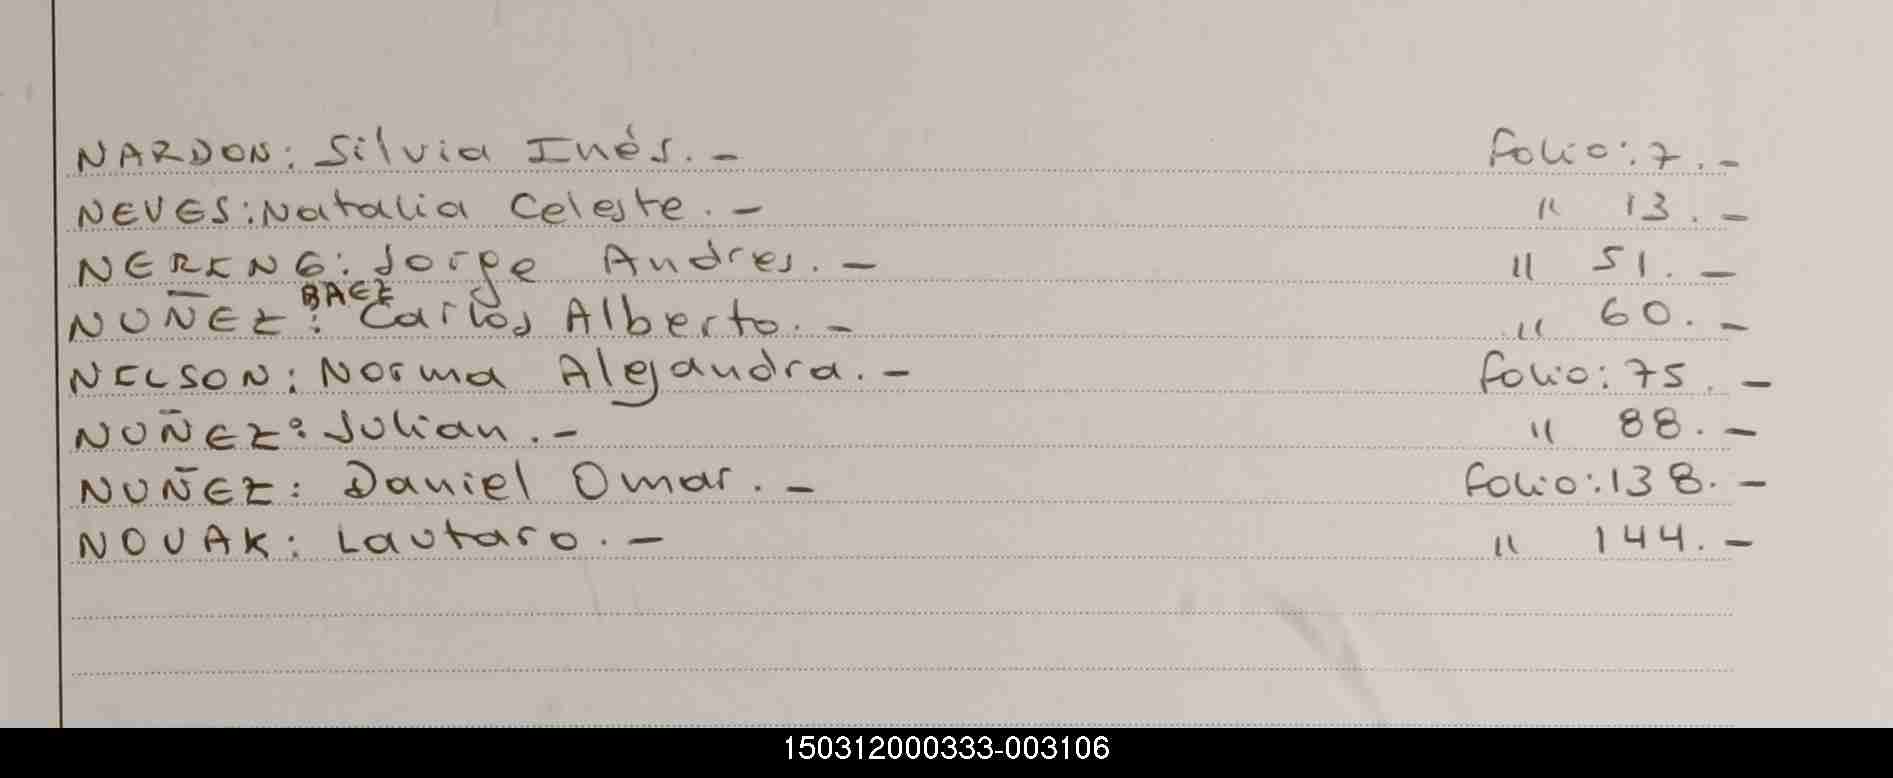 NARDON: Silvia Inés.- folio: 7.-
NEVES: Natalia Celeste.- " 13.-
NERING: Jorge Andres.- " 51.-
BAEZ
NUÑEZ: Carlos Alberto.- " 60.-
NELSON: Norma Alejandra.- folio: 75.-
NUÑEZ: Julian.- " 88.-
NUÑEZ: Daniel Omar.- folio: 138.-
NOVAK: Lautaro.- " 144.-
150312000333-003106